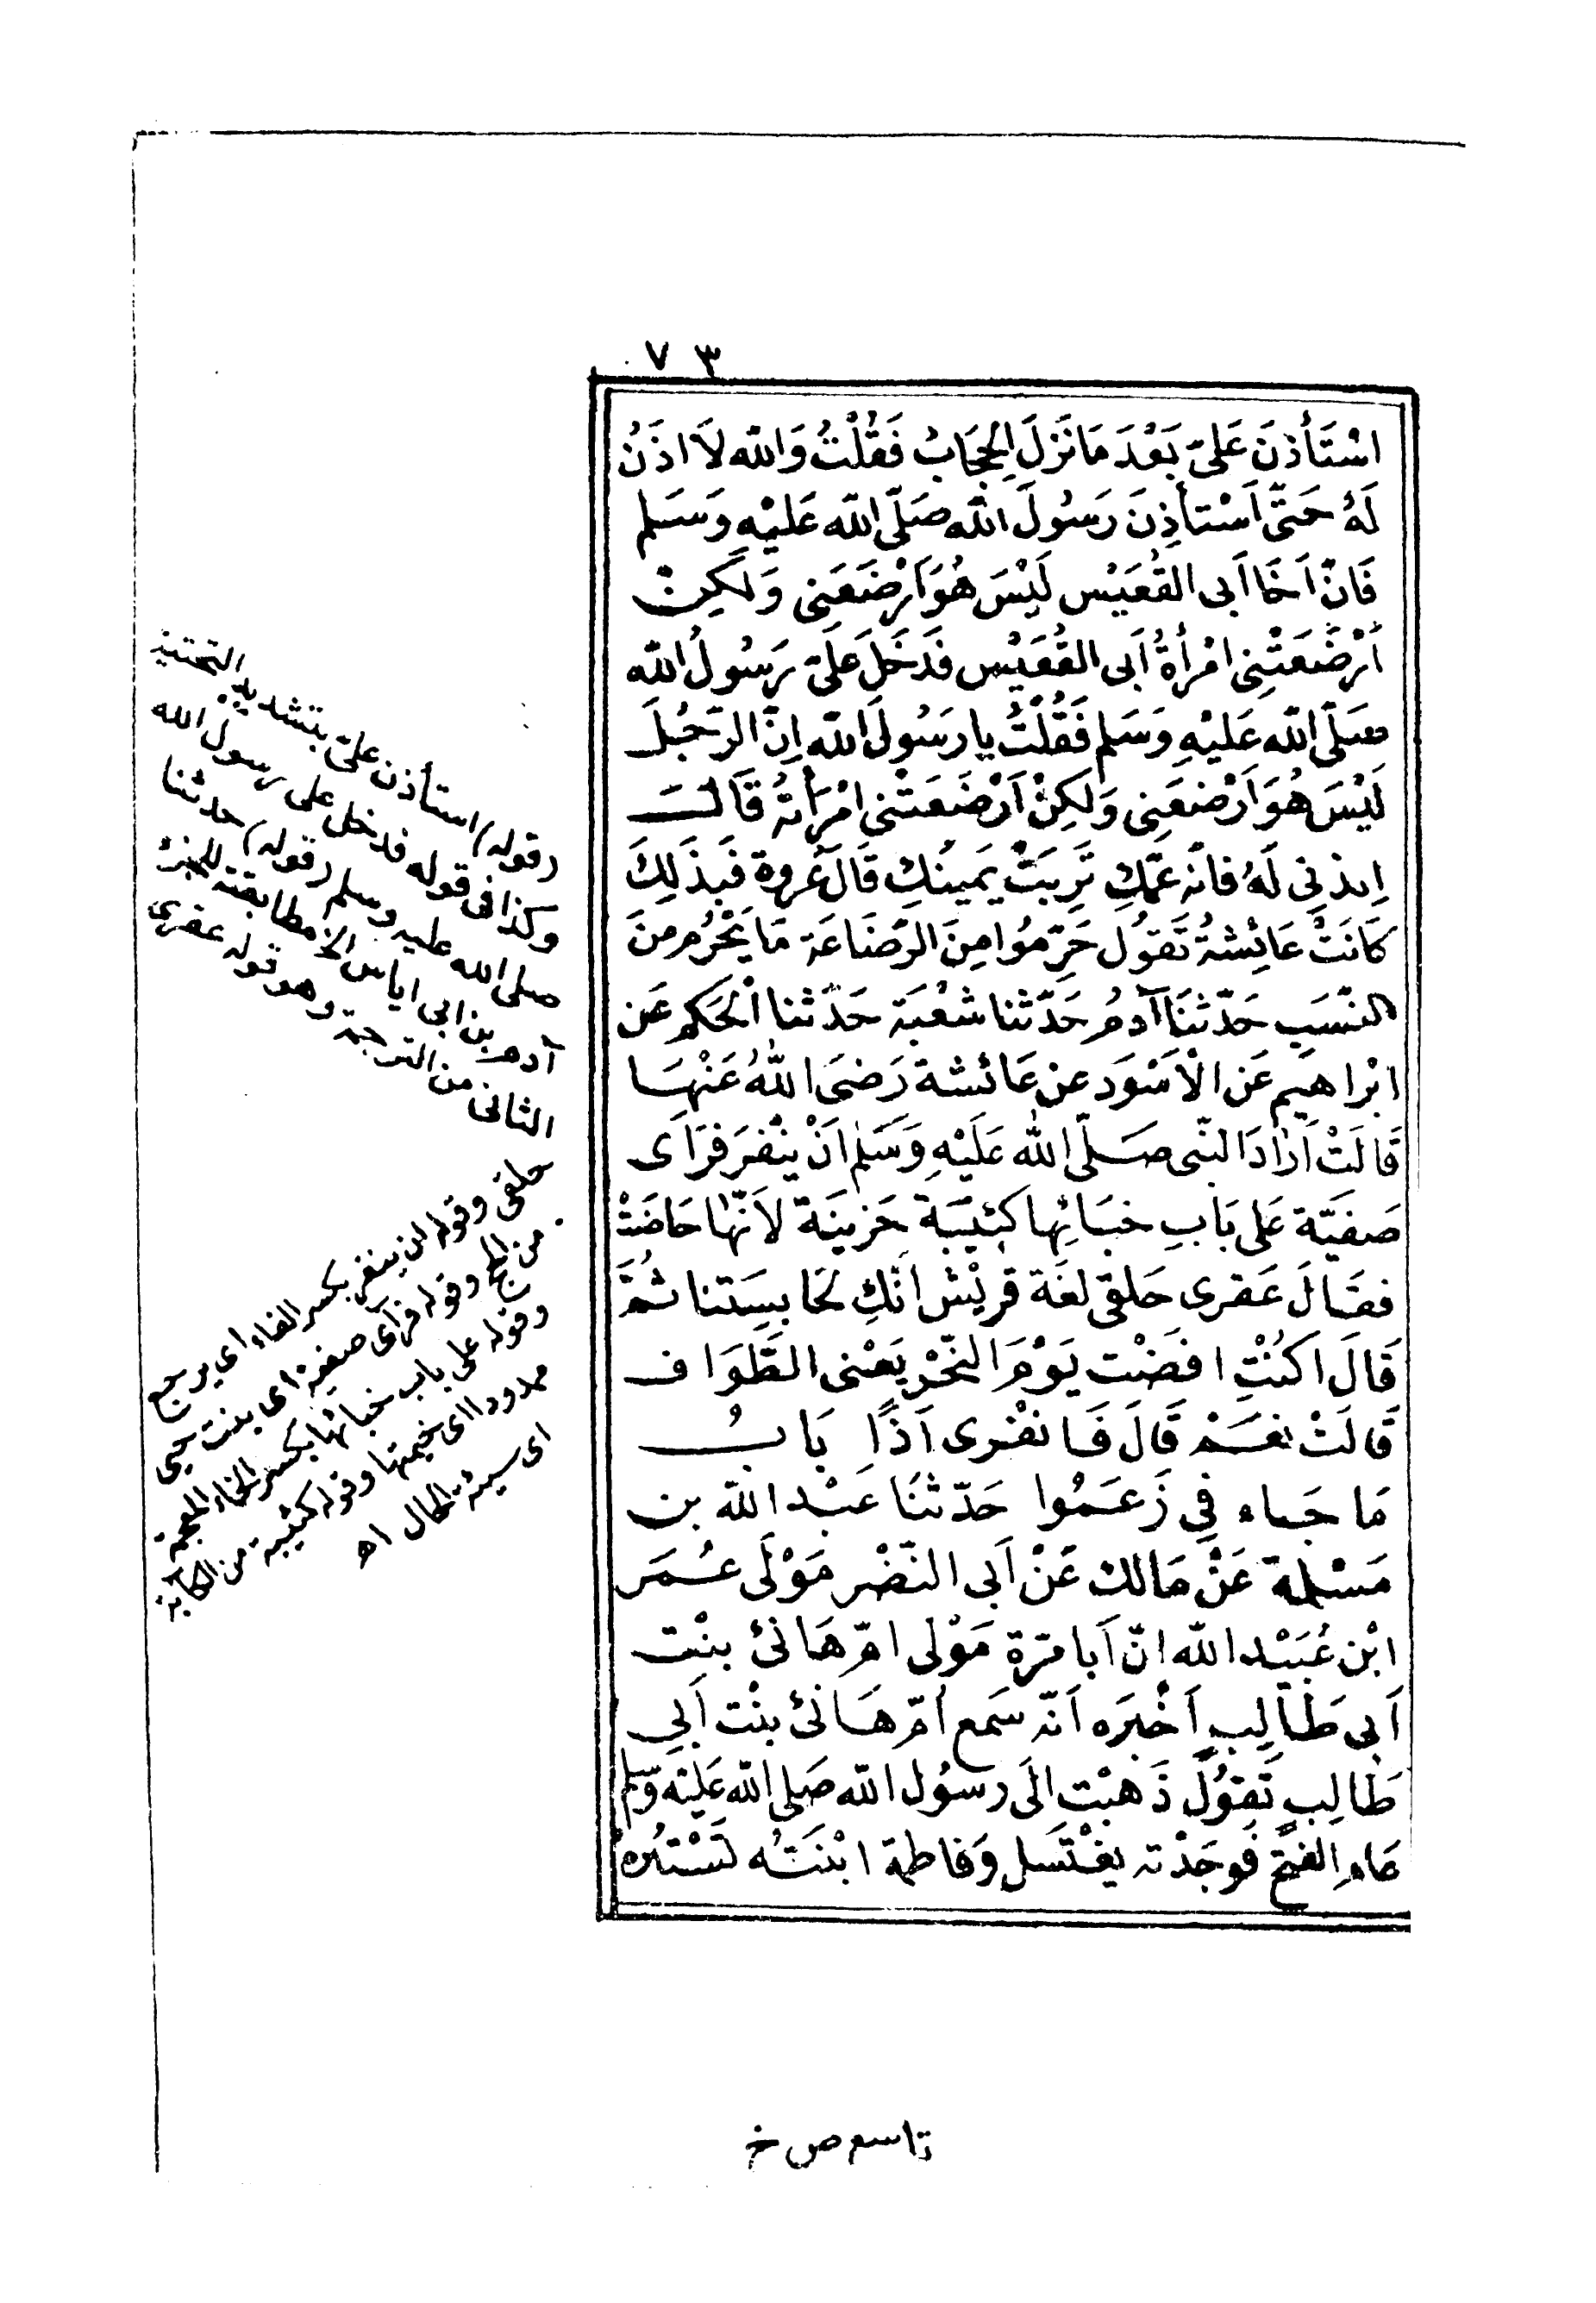 ٧٣
اسْتَأذنَ عَلىّ بَعْدَ مَا نَزَلَ الحِجَابُ فَقُلْتُ وَالله لَا اذَنُ
لَهُ حَتّى اَسْتأذِنَ رَسُولَ الله صَلّى الله عَليْهِ وَسَلم
فَانّ اَخَا اَبى القُعَيْس لَيْسَ هُوَ اَرْضَعَنِى وَلكِنْ
اَرْضَعَتْنِى امْرأةُ اَبى القُعَيْس فدَخَلَ عَلىّ رَسُولُ الله
صَلّى الله عَليْهِ وَسَلم فَقُلْتُ يا رَسُولَ الله اِنّ الرّجُلَ
لَيْسَ هُوَ اَرْضعَنِى وَلكِنْ اَرْضَعَتْنى امْرَأتهُ قَالَتَ
ايذنِى لَهُ فانّه عَمّكِ تَرِبَتْ يَمِينُكِ قَالَ عُروة فَبِذَلِكَ
كَانَتْ عَائِشةُ تَقوُل حَرِّمُوا مِنَ الرّضَاعَة مَا يَحْرُم مِنَ
النّسَبِ حَدّثنَا آدمُ حَدّثنا شعْبَة حَدّثنا اْلحَكم عَن
ابْراهيم عَن الْاَسْوَد عن عَائشة رَضىَ اللهُ عَنْهَا
قَالَتْ اَرادَ النّبى صَلّى الله عَلَيْهِ وَسَلم اَنْ يَنْفرَ فرَاَى
صَفيَّة عَلى بَابِ خبَائِها كئِيبَة حَزينَة لاَنّها حَاضَتْ
فقَالَ عَقرى حَلقى لغَة قريْش انّكِ لحَابسَتنا ثُمَّ
قَالَ اكُنْتِ افضْت يَوْمَ النّحْر يَعْنى الطَّوَاف
قَالَتْ نعَمْ قَالَ فَانفْرى اذًا بَابُ
مَا جَاء فِى زَعَمُوا حَدّثنَا عَبْد الله بن
مَسْلمة عَنْ مَالك عَنْ اَبى النّضْر مَوْلَى عُمَر
ابْن عُبَيْد الله انّ اَبا مرّة مَوْلى امّ هَانئ بنْت
اَبى طَالِبٍ اَخْبَرَه انّه سَمع اُمّ هَانئ بنْت اَبِى
طَالِبٍ تَقوُل ذَهبْت الَى رسوُل الله صَلى الله عَليْه وَسلم
عَام الفتح فَوجَدْته يغْتَسل وَفاطمة ابْنَتُه تَسْتُره
(قوله) استأذن علىّ بتشديد التحتية
وكذا فى قوله فدخل على رسول الله
صلى الله عليه وسلم (قوله) حدثنا
آدم بن ابى اياس الخ مطابقته للجزء
الثانى من الترجمة وهو قوله عقرى
حلقى وقوله ان ينفر بكسر الفاء اى يرجع
من الحج وقوله فرأى صفية اى بنت حيى
وقوله على باب خبائها بكسر الخاء المعجمة
ممدودا اى خيمتها وقوله كئيبة من الكآبة
اى سيئة الحال اه
تاسع ص خ